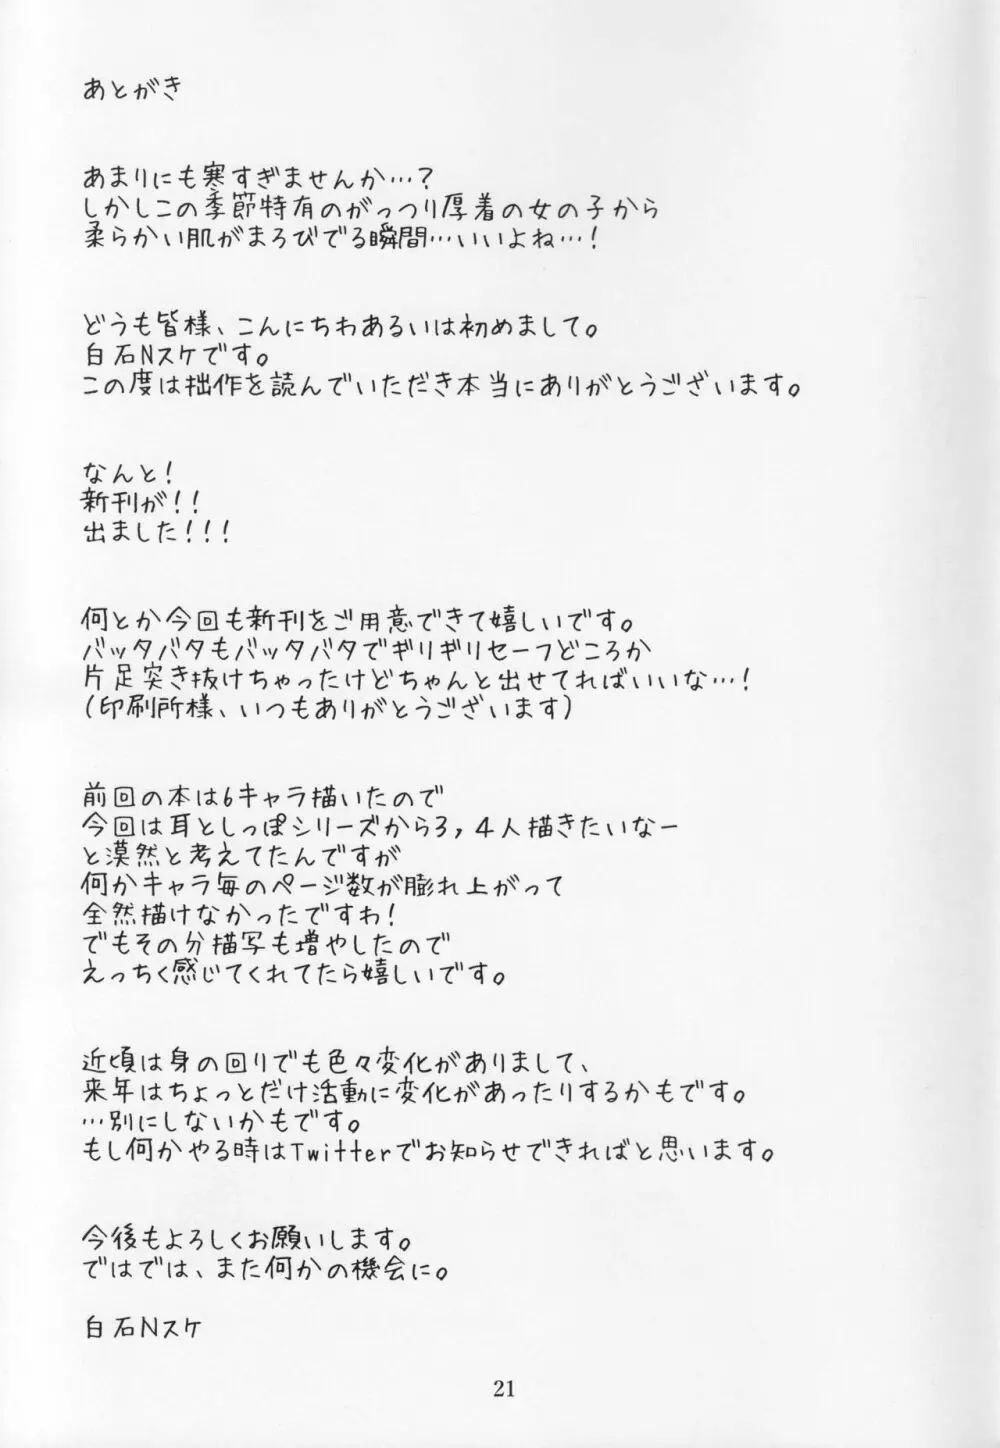 あとがき
あまりにも寒すぎませんか…？
しかしこの季節特有のがっつり厚着の女の子から
柔らかい肌がまろびでる瞬間…いいよね…！
どうも皆様、こんにちわあるいは初めまして。
白石Nスケです。
この度は拙作を読んでいただき本当にありがとうございます。
なんと！
新刊が！！
出ました！！！
何とか今回も新刊をご用意できて嬉しいです。
バッタバタもバッタバタでギリギリセーフどころか
片足突き抜けちゃったけどちゃんと出せてればいいな…！
（印刷所様、いつもありがとうございます）
前回の本は6キャラ描いたので
今回は耳としっぽシリーズから3，4人描きたいなー
と漠然と考えてたんですが
何かキャラ毎のページ数が膨れ上がって
全然描けなかったですわ！
でもその分描写も増やしたので
えっちく感じてくれてたら嬉しいです。
近頃は身の回りでも色々変化がありまして、
来年はちょっとだけ活動に変化があったりするかもです。
…別にしないかもです。
もし何かやる時はTwitterでお知らせできればと思います。
今後もよろしくお願いします。
ではでは、また何かの機会に。
白石Nスケ
21